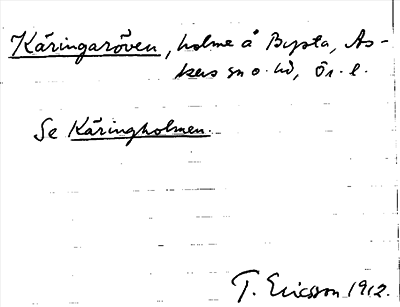 Käringaröven, holme å Bysta, As-
kers sn o. hd, Ör. l.
Se Käringholmen.
T. Ericsson 1912.